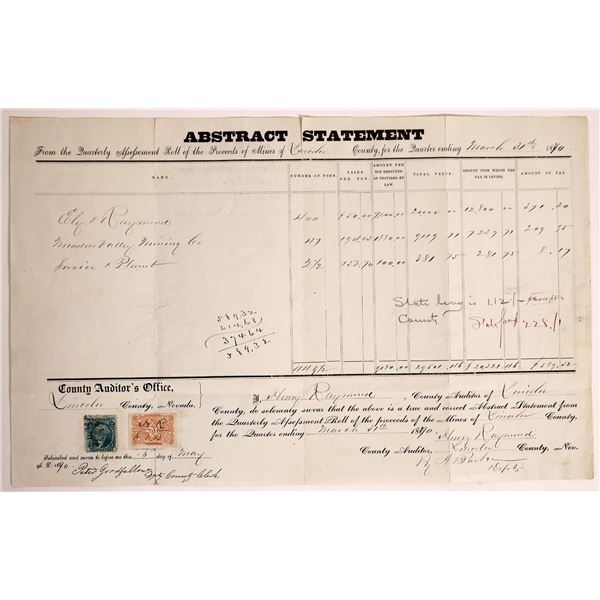 ABSTRACT STATEMENT
From the Quarterly Assessment Roll of the Proceeds of Mines of Lincoln County, for the Quarter ending March 31st 1870.
NAME. NUMBER OF TONS. VALUE PER TON. AMOUNT PER TON DEDUCTED AS PROVIDED BY LAW. TOTAL VALUE. AMOUNT UPON WHICH THE TAX IS LEVIED. AMOUNT OF TAX.
Ely & Raymond 400 50.00 7200.00 20,000 00 12,800 00 371 20
Meadow Valley Mining Co 117 9119 71 7239 71 209 95
2½ 152.70 100.00 381 75 281 75 8.17
589.32
214.68
374.64
589.32
State levy is 1.12
County
228/1
9180.00 29,501.46 $20,321.46 $589.32
County Auditor's Office,
Lincoln County, Nevada.
I, Henry Raymond, County Auditor of Lincoln
County, do solemnly swear that the above is a true and correct Abstract Statement from
the Quarterly Assessment Roll of the proceeds of the Mines of Lincoln County,
for the Quarter ending March 31st 1870
Henry Raymond
County Auditor, Lincoln County, Nev.
Subscribed and sworn to before me this 5th day of May
A. D. 1870
Peter Goodfellow
Dpty County Clerk
By
Depty